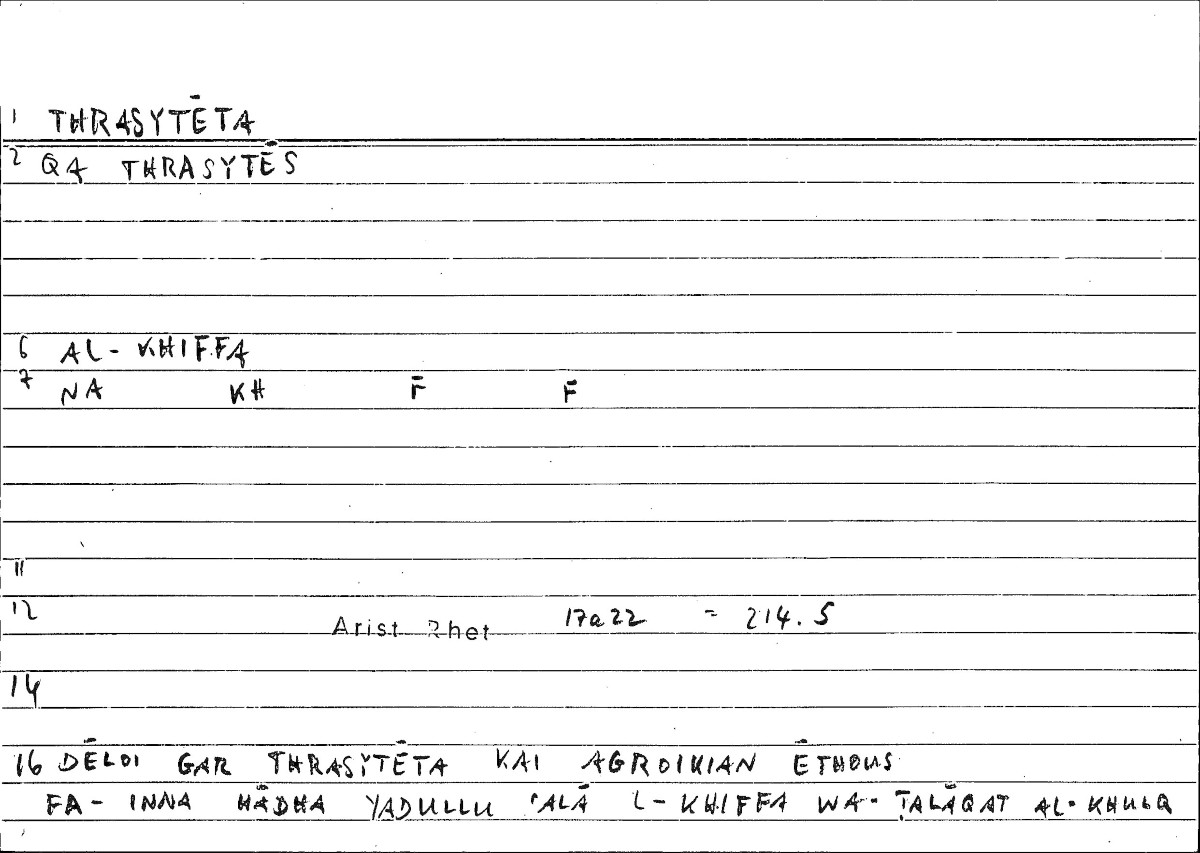 1 THRASYTĒTA
2 QA THRASYTĒS
6 AL-KHIFFA
7 NA KH F̄ F̄
11
12 Arist Rhet 17a22 = 214.5
14
16 DĒLOI GAR THRASYTĒTA KAI AGROIKIAN ĒTHOUS
FA-INNA HĀDHA YADULLU ʿALĀ L-KHIFFA WA-ṬALĀQAT AL-KHULQ